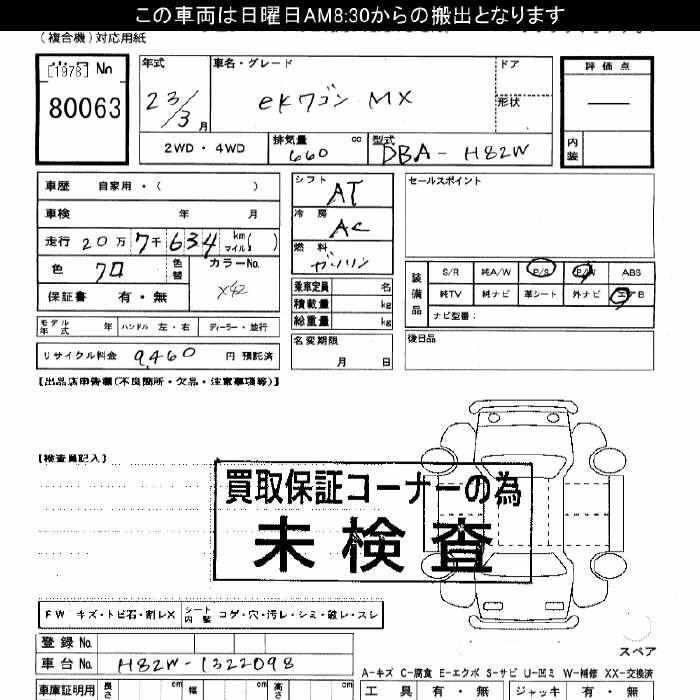 この車両は日曜日AM8:30からの搬出となります
(複合機)対応用紙
[1978] No
80063
年式
23/3月
車名・グレード
ekワゴン MX
ドア
形状
評価点
内装
2WD・4WD
排気量 660 cc
型式 DBA-H82W
車歴 自家用・( )
車検 年 月
走行 20万7千634 km マイル( )
色 クロ
色替
カラーNo.
X42
保証書 有・無
モデル年式 年 ハンドル 左・右 ディーラー・並行
リサイクル料金 9,460 円 預託済
シフト AT
冷房 AC
燃料 ガソリン
乗車定員 名
積載量 kg
総重量 kg
名変期限
月 日
セールスポイント
装備品
S/R 純A/W P/S P/W ABS
純TV 純ナビ 革シート 外ナビ エアB
ナビ型番:
後日品
【出品店申告欄(不良箇所・欠品・注意事項等)】
【検査員記入】
買取保証コーナーの為
未検査
FW キズ・トビ石・割レX
シート内装 コゲ・穴・汚レ・シミ・破レ・スレ
登録No.
車台No. H82W-1322098
車庫証明用 長さ cm 幅 cm 高さ cm
スペア
A-キズ C-腐食 E-エクボ S-サビ U-凹ミ W-補修 XX-交換済
工具 有・無 ジャッキ 有・無